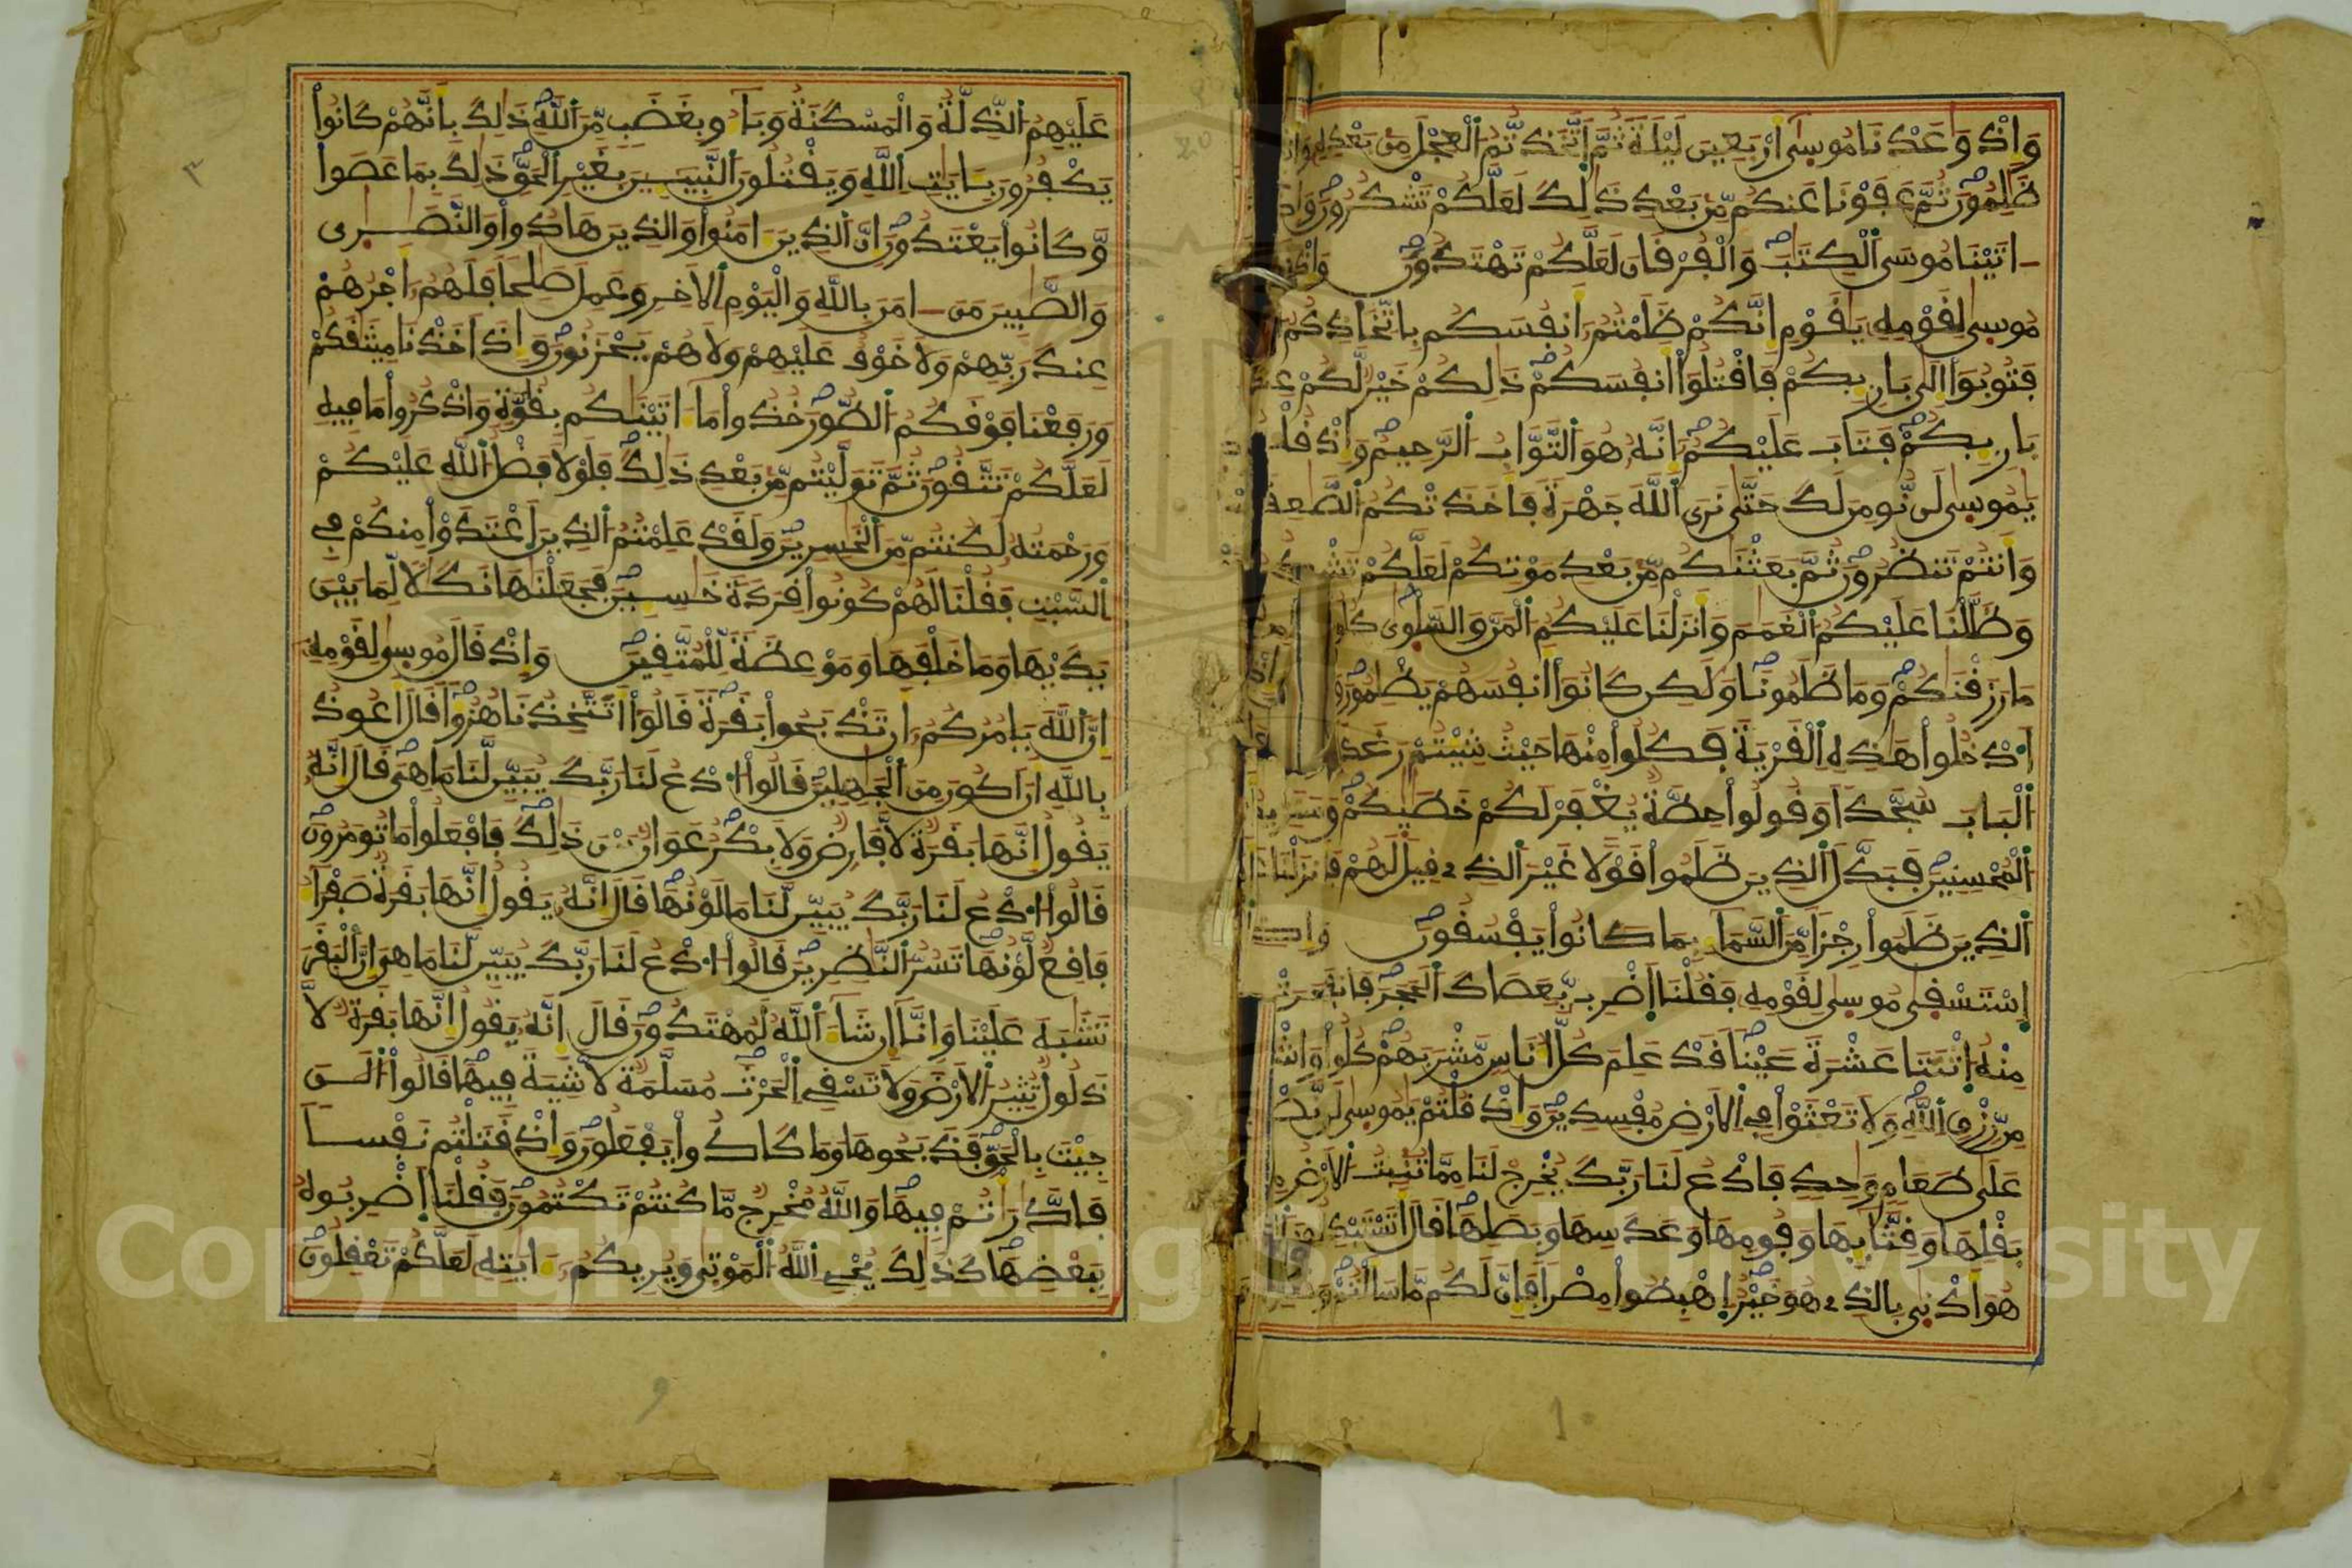 وَإِذْ وَاعَدْنَا مُوسَىٰ أَرْبَعِينَ لَيْلَةً ثُمَّ اتَّخَذتُّمُ الْعِجْلَ مِن بَعْدِهِ وَأَنتُمْ
ظَٰلِمُونَ ثُمَّ عَفَوْنَا عَنكُم مِّن بَعْدِ ذَٰلِكَ لَعَلَّكُمْ تَشْكُرُونَ وَإِذْ
ءَاتَيْنَا مُوسَى الْكِتَٰبَ وَالْفُرْقَانَ لَعَلَّكُمْ تَهْتَدُونَ وَإِذْ قَالَ
مُوسَىٰ لِقَوْمِهِ يَٰقَوْمِ إِنَّكُمْ ظَلَمْتُمُ أَنفُسَكُم بِاتِّخَاذِكُمُ
فَتُوبُوا إِلَىٰ بَارِئِكُمْ فَاقْتُلُوا أَنفُسَكُمْ ذَٰلِكُمْ خَيْرٌ لَّكُمْ عِندَ
بَارِئِكُمْ فَتَابَ عَلَيْكُمُ إِنَّهُ هُوَ التَّوَّابُ الرَّحِيمُ وَإِذْ قُلْتُمْ
يَٰمُوسَىٰ لَن نُّومِنَ لَكَ حَتَّىٰ نَرَى اللَّهَ جَهْرَةً فَأَخَذَتْكُمُ الصَّٰعِقَةُ
وَأَنتُمْ تَنظُرُونَ ثُمَّ بَعَثْنَٰكُم مِّن بَعْدِ مَوْتِكُمْ لَعَلَّكُمْ تَشْكُرُونَ
وَظَلَّلْنَا عَلَيْكُمُ الْغَمَٰمَ وَأَنزَلْنَا عَلَيْكُمُ الْمَنَّ وَالسَّلْوَىٰ كُلُوا
مَا رَزَقْنَٰكُمْ وَمَا ظَلَمُونَا وَلَٰكِن كَانُوا أَنفُسَهُمْ يَظْلِمُونَ
ادْخُلُوا هَٰذِهِ الْقَرْيَةَ فَكُلُوا مِنْهَا حَيْثُ شِئْتُمْ رَغَدًا
الْبَابَ سُجَّدًا وَقُولُوا حِطَّةٌ يُغْفَرْ لَكُمْ خَطَٰيَٰكُمْ وَسَنَزِيدُ
الْمُحْسِنِينَ فَبَدَّلَ الَّذِينَ ظَلَمُوا قَوْلًا غَيْرَ الَّذِي قِيلَ لَهُمْ فَأَنزَلْنَا عَلَى
الَّذِينَ ظَلَمُوا رِجْزًا مِّنَ السَّمَاءِ بِمَا كَانُوا يَفْسُقُونَ وَإِذِ
اسْتَسْقَىٰ مُوسَىٰ لِقَوْمِهِ فَقُلْنَا اضْرِب بِّعَصَاكَ الْحَجَرَ فَانفَجَرَتْ
مِنْهُ اثْنَتَا عَشْرَةَ عَيْنًا قَدْ عَلِمَ كُلُّ أُنَاسٍ مَّشْرَبَهُمْ كُلُوا وَاشْرَبُوا
مِن رِّزْقِ اللَّهِ وَلَا تَعْثَوْا فِي الْأَرْضِ مُفْسِدِينَ وَإِذْ قُلْتُمْ يَٰمُوسَىٰ لَن نَّصْبِرَ
عَلَىٰ طَعَامٍ وَٰحِدٍ فَادْعُ لَنَا رَبَّكَ يُخْرِجْ لَنَا مِمَّا تُنبِتُ الْأَرْضُ مِن
بَقْلِهَا وَقِثَّائِهَا وَفُومِهَا وَعَدَسِهَا وَبَصَلِهَا قَالَ أَتَسْتَبْدِلُونَ الَّذِي
هُوَ أَدْنَىٰ بِالَّذِي هُوَ خَيْرٌ اهْبِطُوا مِصْرًا فَإِنَّ لَكُم مَّا سَأَلْتُمْ وَضُرِبَتْ
عَلَيْهِمُ الذِّلَّةُ وَالْمَسْكَنَةُ وَبَاءُو بِغَضَبٍ مِّنَ اللَّهِ ذَٰلِكَ بِأَنَّهُمْ كَانُوا
يَكْفُرُونَ بِـَٔايَٰتِ اللَّهِ وَيَقْتُلُونَ النَّبِيـِٔينَ بِغَيْرِ الْحَقِّ ذَٰلِكَ بِمَا عَصَوا
وَّكَانُوا يَعْتَدُونَ إِنَّ الَّذِينَ ءَامَنُوا وَالَّذِينَ هَادُوا وَالنَّصَٰرَىٰ
وَالصَّٰبِينَ مَنَ ءَامَنَ بِاللَّهِ وَالْيَوْمِ الْأَخِرِ وَعَمِلَ صَٰلِحًا فَلَهُمُ أَجْرُهُمْ
عِندَ رَبِّهِمْ وَلَا خَوْفٌ عَلَيْهِمْ وَلَا هُمْ يَحْزَنُونَ وَإِذَ أَخَذْنَا مِيثَٰقَكُمْ
وَرَفَعْنَا فَوْقَكُمُ الطُّورَ خُذُوا مَا ءَاتَيْنَٰكُم بِقُوَّةٍ وَاذْكُرُوا مَا فِيهِ
لَعَلَّكُمْ تَتَّقُونَ ثُمَّ تَوَلَّيْتُم مِّن بَعْدِ ذَٰلِكَ فَلَوْلَا فَضْلُ اللَّهِ عَلَيْكُمْ
وَرَحْمَتُهُ لَكُنتُم مِّنَ الْخَٰسِرِينَ وَلَقَدْ عَلِمْتُمُ الَّذِينَ اعْتَدَوْا مِنكُمْ فِي
السَّبْتِ فَقُلْنَا لَهُمْ كُونُوا قِرَدَةً خَٰسِـِٔينَ فَجَعَلْنَٰهَا نَكَٰلًا لِّمَا بَيْنَ
يَدَيْهَا وَمَا خَلْفَهَا وَمَوْعِظَةً لِّلْمُتَّقِينَ وَإِذْ قَالَ مُوسَىٰ لِقَوْمِهِ
إِنَّ اللَّهَ يَامُرُكُمُ أَن تَذْبَحُوا بَقَرَةً قَالُوا أَتَتَّخِذُنَا هُزُؤًا قَالَ أَعُوذُ
بِاللَّهِ أَنَ أَكُونَ مِنَ الْجَٰهِلِينَ قَالُوا ادْعُ لَنَا رَبَّكَ يُبَيِّن لَّنَا مَا هِيَ قَالَ إِنَّهُ
يَقُولُ إِنَّهَا بَقَرَةٌ لَّا فَارِضٌ وَلَا بِكْرٌ عَوَانٌ بَيْنَ ذَٰلِكَ فَافْعَلُوا مَا تُومَرُونَ
قَالُوا ادْعُ لَنَا رَبَّكَ يُبَيِّن لَّنَا مَا لَوْنُهَا قَالَ إِنَّهُ يَقُولُ إِنَّهَا بَقَرَةٌ صَفْرَاءُ
فَاقِعٌ لَّوْنُهَا تَسُرُّ النَّٰظِرِينَ قَالُوا ادْعُ لَنَا رَبَّكَ يُبَيِّن لَّنَا مَا هِيَ إِنَّ الْبَقَرَ
تَشَٰبَهَ عَلَيْنَا وَإِنَّا إِن شَاءَ اللَّهُ لَمُهْتَدُونَ قَالَ إِنَّهُ يَقُولُ إِنَّهَا بَقَرَةٌ لَّا
ذَلُولٌ تُثِيرُ الْأَرْضَ وَلَا تَسْقِي الْحَرْثَ مُسَلَّمَةٌ لَّا شِيَةَ فِيهَا قَالُوا الْـَٰٔنَ
جِئْتَ بِالْحَقِّ فَذَبَحُوهَا وَمَا كَادُوا يَفْعَلُونَ وَإِذْ قَتَلْتُمْ نَفْسًا
فَادَّٰرَٰتُمْ فِيهَا وَاللَّهُ مُخْرِجٌ مَّا كُنتُمْ تَكْتُمُونَ فَقُلْنَا اضْرِبُوهُ
بِبَعْضِهَا كَذَٰلِكَ يُحْيِ اللَّهُ الْمَوْتَىٰ وَيُرِيكُمُ ءَايَٰتِهِ لَعَلَّكُمْ تَعْقِلُونَ